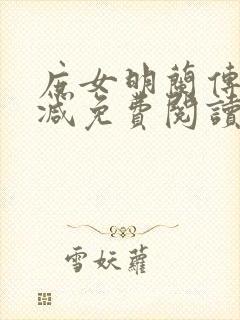 庶女明蘭傳
減免費閱讀
雪妖蘿